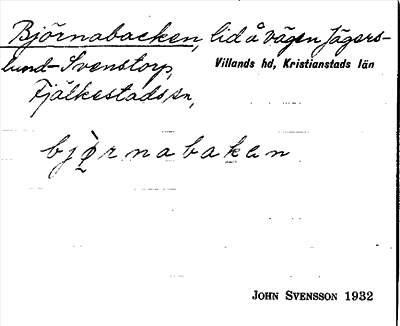 Björnabacken, lid å vägen Jägers-
lund-Svenstorp,
Villands hd, Kristianstads län
Fjälkestads sn,
bjørnabakan
JOHN SVENSSON 1932